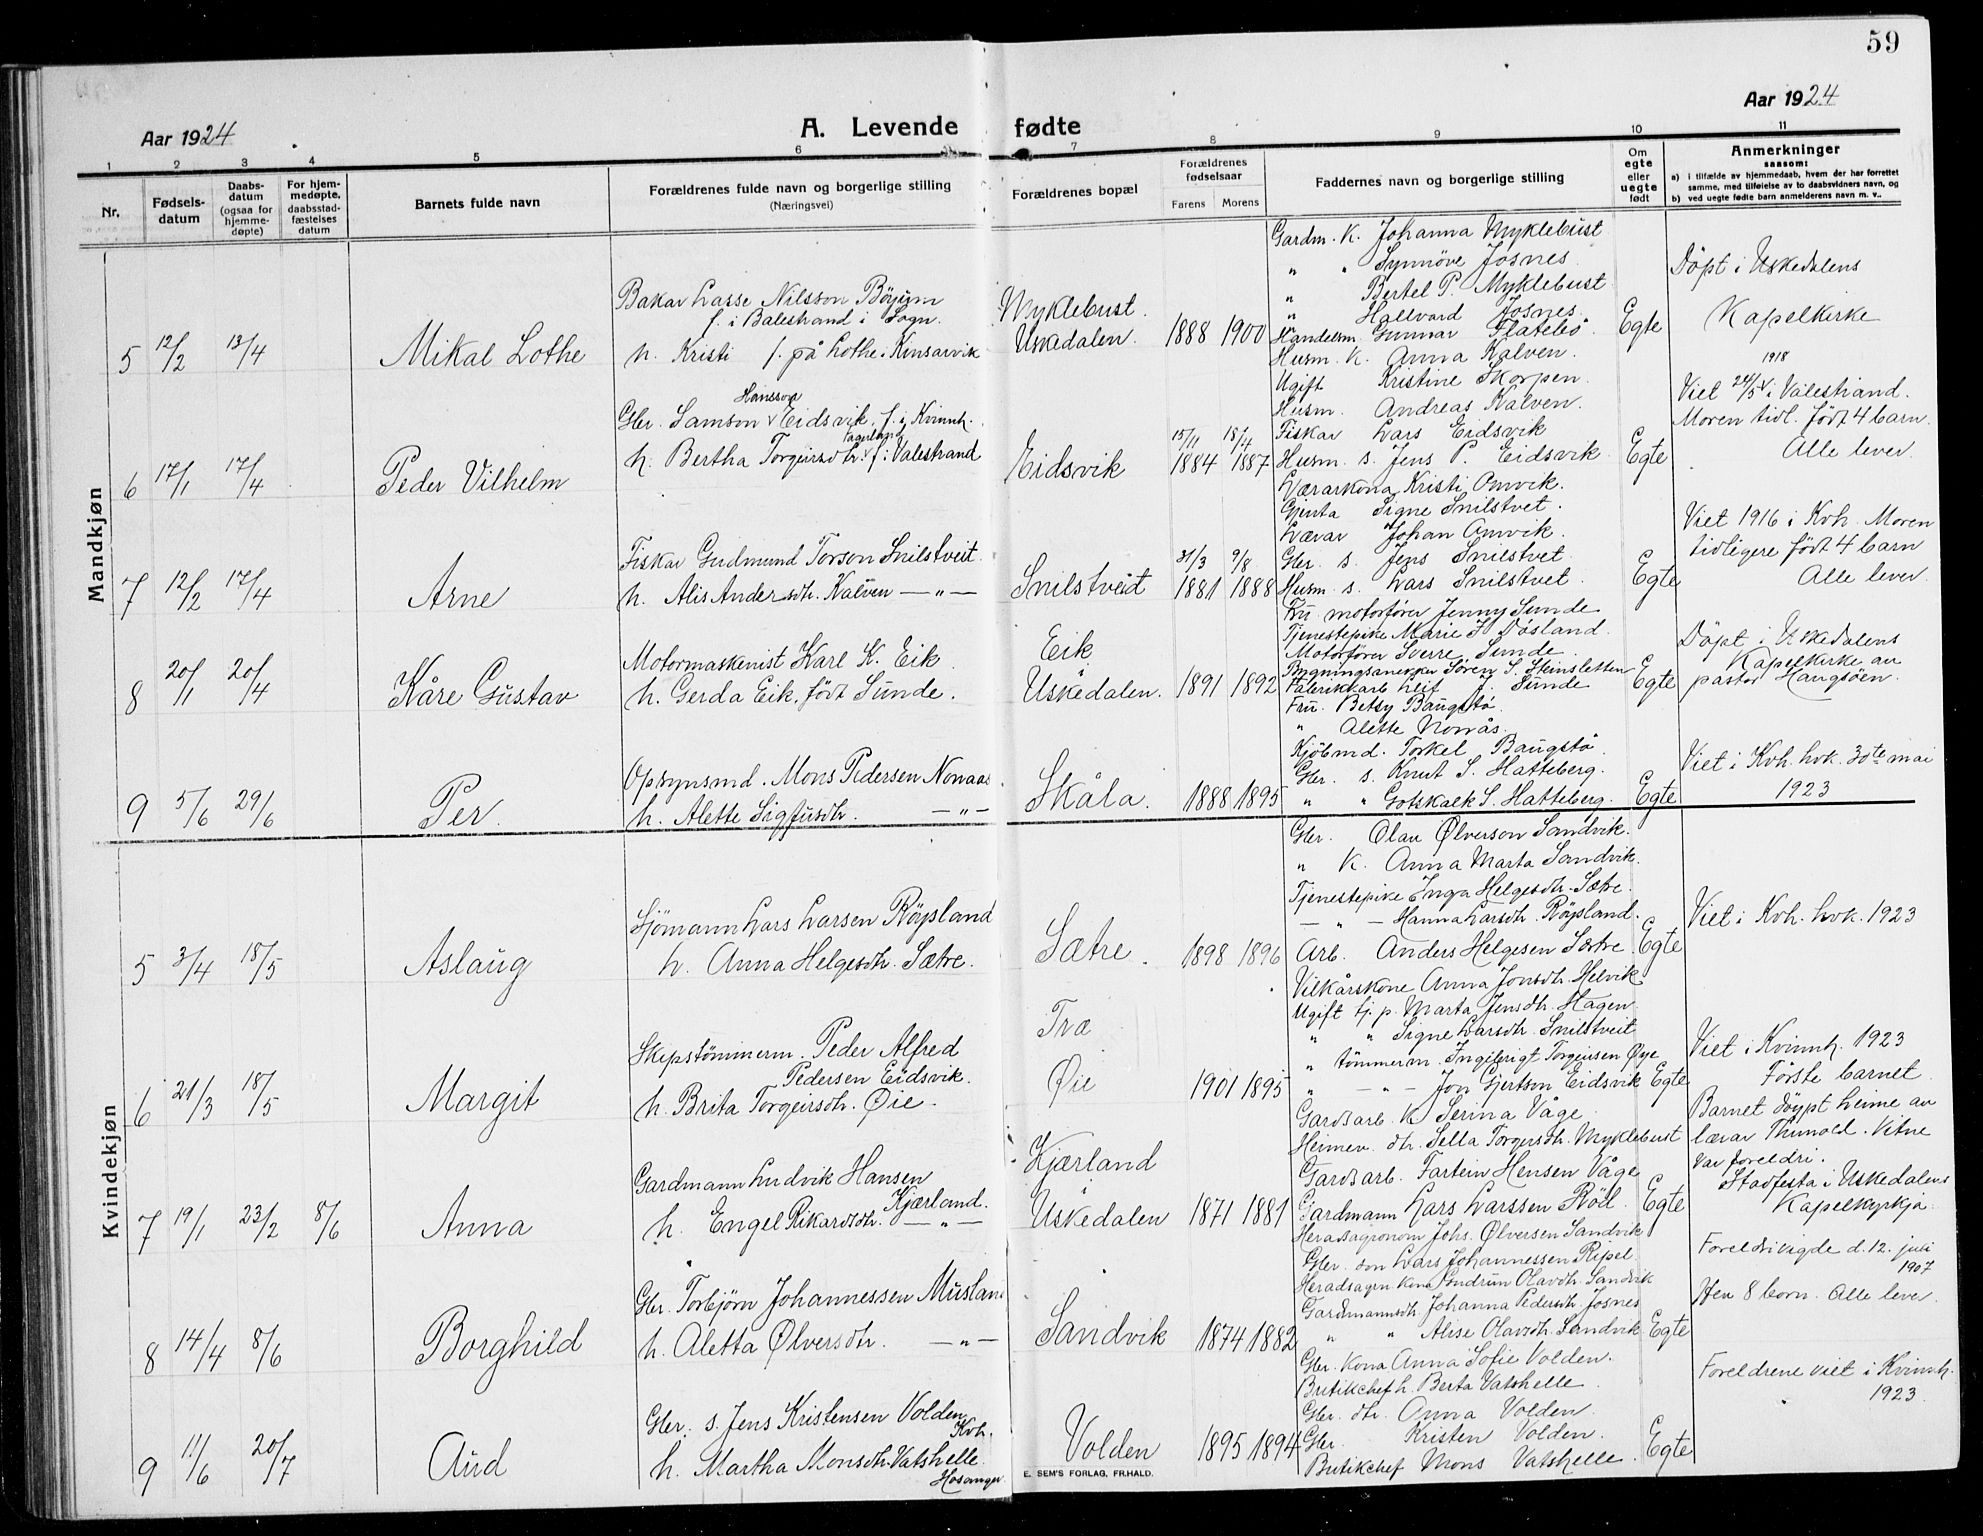 59
Aar 1924
A. Levende fødte
Aar 1924
1 2 3 4 5 6 7 8 9 10 11
Nr.
Fødsels-
datum
Daabs-
datum
(ogsaa for
hjemme-
døpte)
For hjem-
medøpte,
daabsstad-
fæstelses
datum
Barnets fulde navn
Forældrenes fulde navn og borgerlige stilling
(Næringsvei)
Forældrenes bopæl
Forældrenes
fødselsaar
Farens Morens
Faddernes navn og borgerlige stilling
Om
egte
eller
uegte
født
Anmerkninger
saasom:
a) i tilfælde av hjemmedaab, hvem der har forrettet
samme, med tilføielse av to daabsvidners navn, og
b) ved uegte fødte barn anmelderens navn m. v..
Mandkjøn
5 12/2 13/4 Mikal Lothe
Bakar Lasse Nilsson Böyum
f. i Balestrand i Sogn.
h. Kristi f. på Lothe i Kinsarvik
Myklebust.
Uskedalen. 1888 1900
Gardm. K. Johanna Myklebust
" " Synnöve Josnes
" Bertel P. Myklebust
" Hallvard Josnes
Handelsm. Gunnar Flatebö
Egte
Döpt i Uskedalens
Kapelkirke
6 17/1 17/4 Peder Vilhelm
Hansson
Gbr. Samson v Eidsvik, f. i Kvinnh.
Fagerland
h. Bertha Torgeirsdtr. v f. i Valestrand
Eidsvik
15/11 18/4
1884 1887
Husm. K. Anna Kalven.
Ugift Kristine Skorpen.
Husm. Andreas Kalven.
Fiskar Lars Eidsvik
Husm. s. Jens P. Eidsvik
Egte
1918
Viet 24/5 v i Valestrand.
Moren tidl. född 4 barn.
Alle lever.
7 12/2 17/4 Arne
Fiskar Gudmund Torson Snilstveit.
h. Alis Andersdtr. Kalven — " —
Snilstveit
31/3 9/8
1881 1888
Lærarkona Kristi Omvik.
Gjenta Signe Snilstvet.
Lærar Johan Omvik.
Gbr. s. Jens Snilstvet
Husm. s. Lars Snilstvet.
Egte
Viet 1916 i Kvh. Moren
tidligere född 4 barn
Alle lever.
8 20/1 20/4 Kåre Gustav
Motormaskenist Karl K. Eik.
h. Gerda Eik, född Sunde.
Eik
Uskedalen. 1891 1892
Fru. motorförer Jenny Sunde
Tjenestepike Marie J. Døsland.
Motorförer Sverre Sunde.
Bygningssnekker Sören S. Heinsletten
Fabrikkarb. Leif J. Sunde
Egte
Döpt i Uskedalens
Kapelkirke av
pastor Haugsöen.
9 5/6 29/6 Per.
Opsynsmd. Mons Pedersen Nonaas
h. Alette Sigfusdtr. — " —
Skåla. 1888 1895
Fru. Betsy Baugstø.
" Alette Nonås.
Kjöbmd. Torkel Baugstø
Gbr. s. Knut S. Hatteberg.
" " Gotskalk S. Hatteberg.
Egte
Viet i Kvh. hvk. 30te mai
1923
Kvindekjøn
5 3/4 18/5 Aslaug
Sjömann Lars Larsen Röysland
h. Anna Helgesdtr. Sætre.
Sætre. 1898 1896
Gbr. Olav Ølverson Sandvik.
" K. Anna Marta Sandvik.
Tjenestepike Inga Helgesdtr. Sætre.
— " — Hanna Larsdtr. Röysland.
Arb. Anders Helgesen Sætre.
Egte
Viet i Kvh. hvk. 1923
6 21/3 18/5 Margit
Skipstömmerm. Peder Alfred
Pedersen Eidsvik.
h. Brita Torgeirsdtr. Øie.
Træ
Øie 1901 1895
Vilkårskone Anna Jonsdtr. Helvik
Ugift tj. p. Marta Jensdtr. Hagen
" " Signe Larsdtr. Snilstveit
" tömmerm. Ingibrigt Torgeirsen Øye
" — " — Jon Gjertson Eidsvik
Egte
Viet i Kvinnh. 1923
Förste barnet.
7 19/1 23/2 8/6 Anna
Gardmann Ludvik Hansen
Kjærland.
h. Engel Rikardsdtr. — " —
Kjærland
Uskedalen 1871 1881
Gardsarb. K Serina Våge
Heimev. dtr. Sella Torgersdtr. Myklebust
Gardsarb. Fartein Hensen Våge
Gardmann Lars Larssen Röd.
Egte
Barnet döypt heime av
lærar Thunold. Vitne
var foreldri.
Stadfesta i Uskedalens
Kapelkyrkja.
8 14/4 8/6 Borghild
Gbr. Torbjörn Johannessen Musland
h. Aletta Ølversdtr. — " —
Sandvik 1874 1882
Heradsagronom Johs. Ølversen Sandvik
Gbr. son Lars Johannessen Ripel
Heradsagrn kona Gudrun Olavdtr. Sandvik
Gardmannsdtr. Johanna Pedersdtr. Josnes
" " Alise Olavsdtr. Sandvik
Egte
Foreldri vigde d. 12. juli
1907
Hev 8 born. Alle lever.
9 11/6 20/7 Aud
Gbr. s. Jens Kristensen Volden
Kvh.
h. Martha Monsdtr. Vatshelle
Hosanger
Volden 1895 1894
Gbr. Kona Anna Sofie Volden.
Butikchef h. Berta Vatshelle.
Gbr. dtr. Anna Volden.
Gbr. Kristen Volden.
Butikchef Mons Vatshelle.
Egte
Foreldrene viet i Kvinnh.
1923.
E. SEM'S FORLAG, FR.HALD.